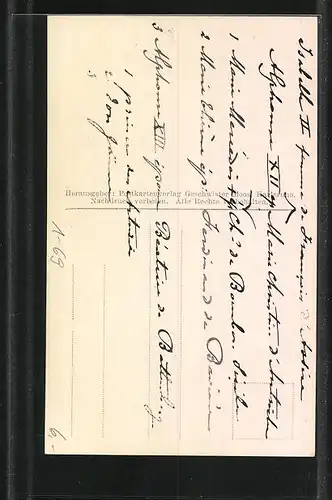 Isabelle II femme de François d'Assise
Alphonse XII ep Marie Christine d'Autriche
1 Marie Mercédes ep Ch. de Bourbon Sicile
2 Marie Thérèse ep Ferdinand de Bavière
3 Alphonse XIII épouse Beatrice de Battenberg
1 prince des Asturies
2 Don Jaime
3
Herausgeber: Postkartenverlag Geschwister Moos, Karlsruhe.
Nachdruck verboten. Alle Rechte vorbehalten.
1-69
6,-